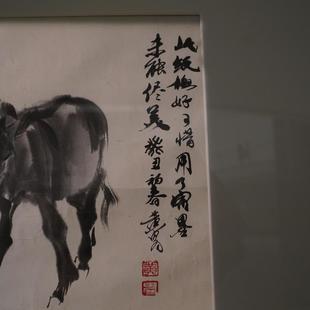 此纸极好可惜用了宿墨
未能尽美 癸丑初春 黄胄